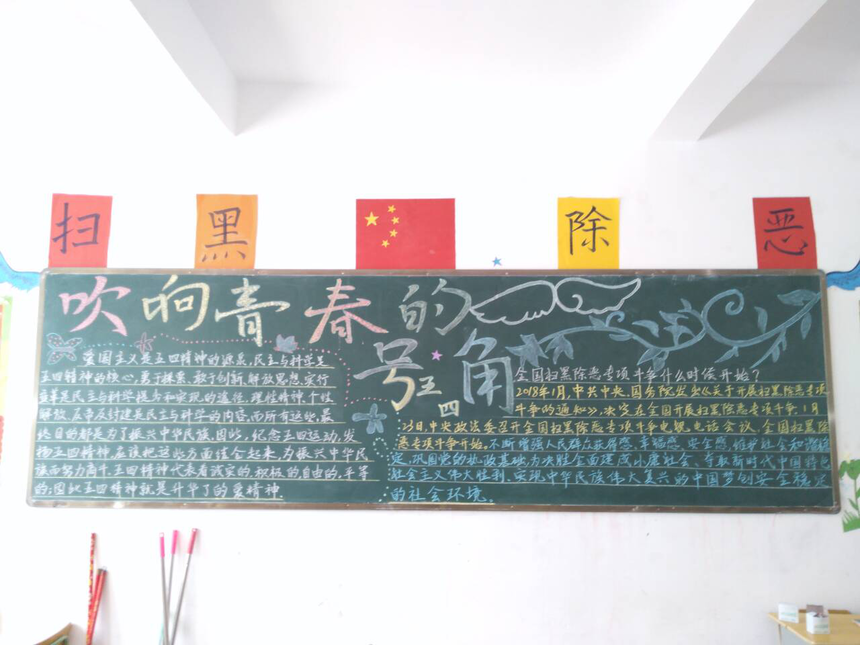 扫 黑 除 恶
吹响青春的
号角
五四
爱国主义是五四精神的源泉,民主与科学是
五四精神的核心,勇于探索、敢于创新、解放思想、实行
变革是民主与科学提出和实现的途径,理性精神、个性
解放、反帝反封建是民主与科学的内容,而所有这些,最
终目的都是为了振兴中华民族。因此,纪念五四运动,发
扬五四精神,应该把这些方面结合起来,为振兴中华民
族而努力奋斗。五四精神代表着诚实的、积极的、自由的、平等
的;因此五四精神就是升华了的爱精神.
全国扫黑除恶专项斗争什么时候开始?
2018年1月,中共中央、国务院发出《关于开展扫黑除恶专项
斗争的通知》,决定在全国开展扫黑除恶专项斗争,1月
23日,中央政法委召开全国扫黑除恶专项斗争电视电话会议,全国扫黑除
恶专项斗争开始。不断增强人民群众获得感、幸福感、安全感,维护社会和谐稳
定,巩固党的执政基础,为决胜全面建成小康社会、夺取新时代中国特色
社会主义伟大胜利、实现中华民族伟大复兴的中国梦创安全稳定
的社会环境.